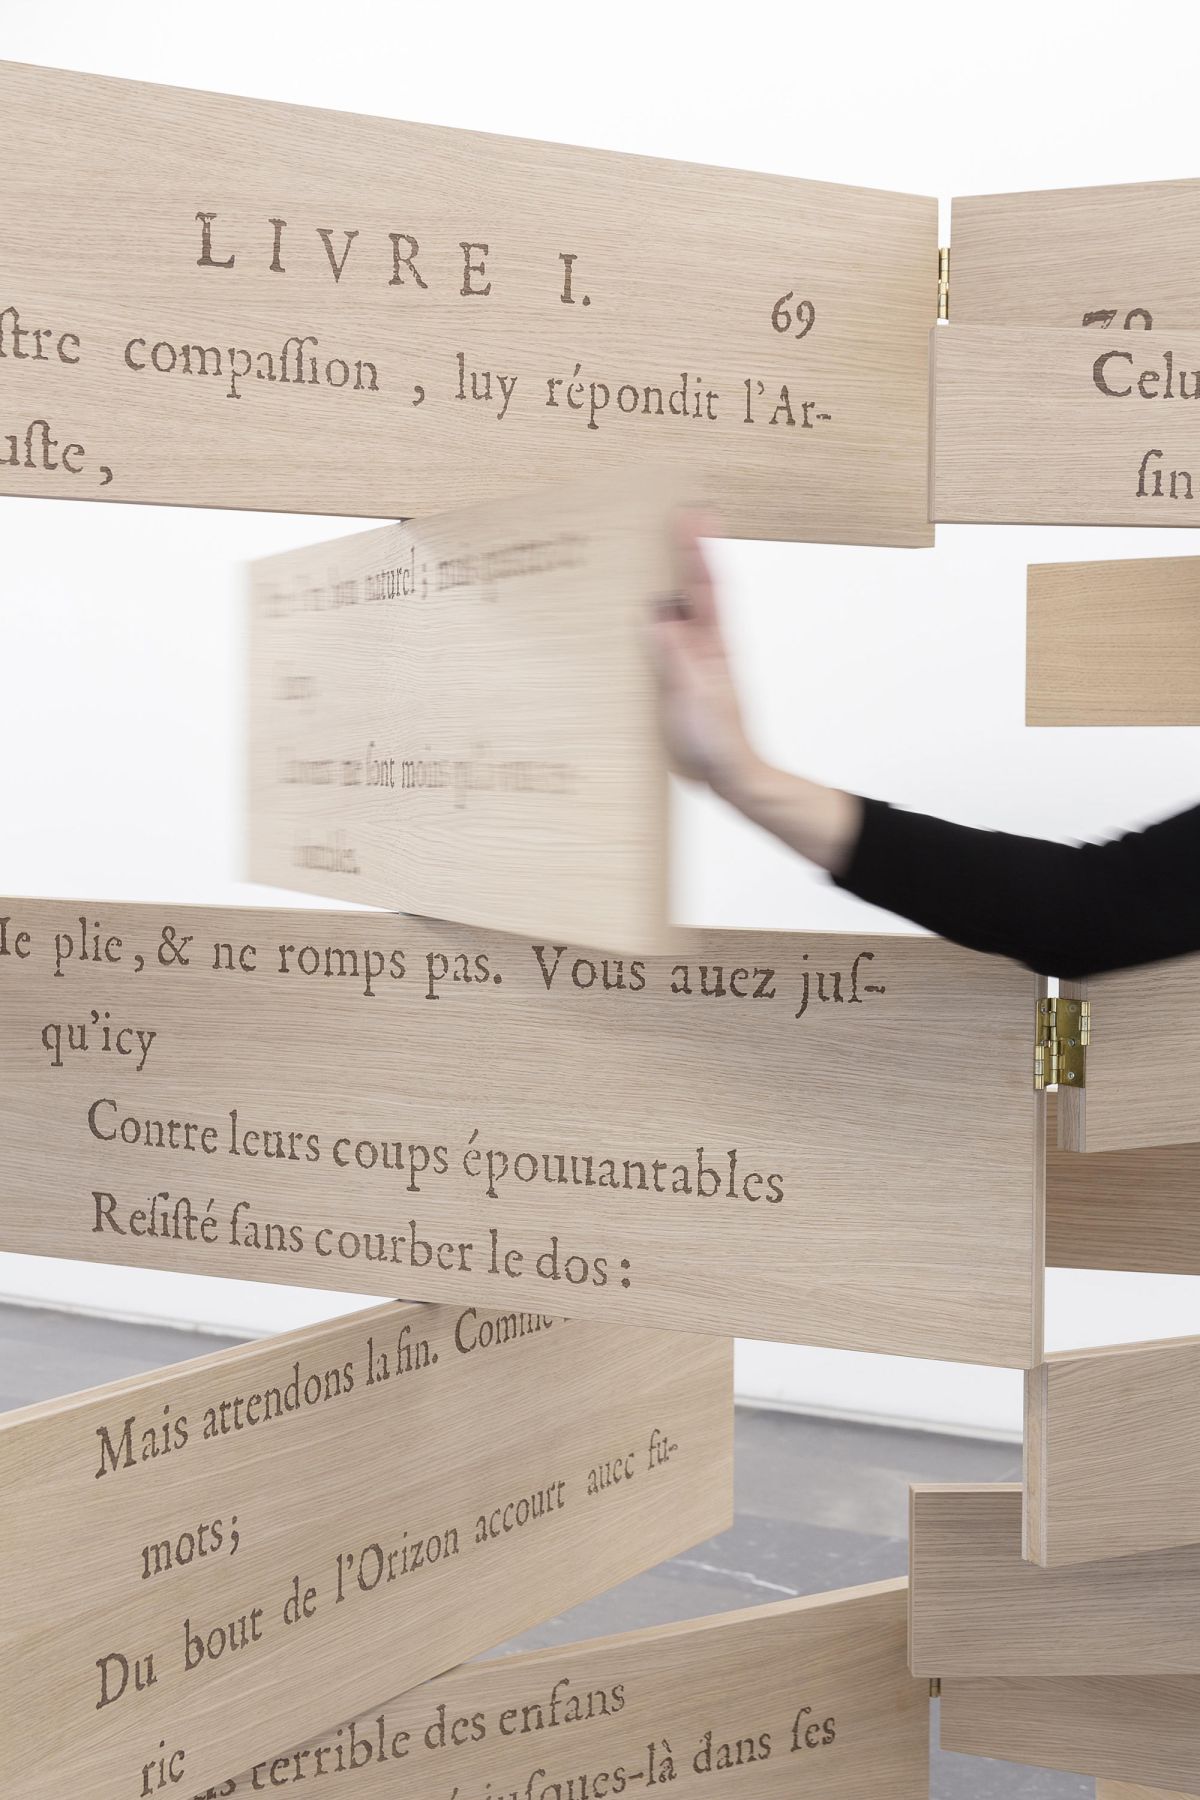 LIVRE I. 69
ſtre compaſſion , luy répondit l'Ar-
uſte ,
70
Celu
ſin
naturel ;
ne ſont moins
Ie plie , & ne romps pas. Vous auez juſ-
qu'icy
Contre leurs coups épouuantables
Reſiſté ſans courber le dos :
Mais attendons la fin. Comme
mots ;
Du bout de l'Orizon accourt auec fu-
rie
terrible des enfans
juſques-là dans ſes